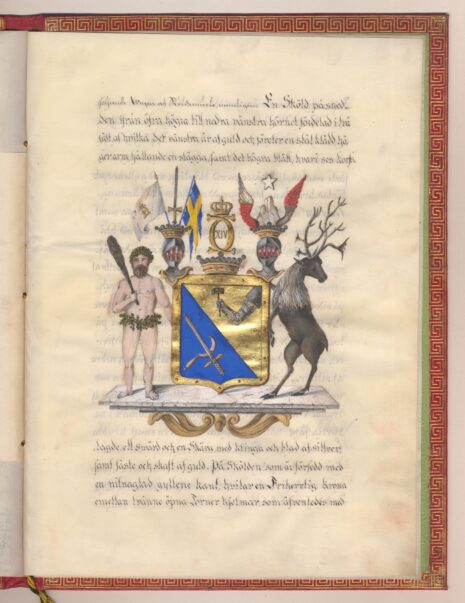 följande Wapen och Sköldemärke, nämligen En Sköld på sned-
den ifrån öfra högra till nedra vänstra hörnet fördelad i två
fält af hvilka det vänstra är af guld och företer en stål klädd hö-
ger arm hållande en slägga, samt det högra blått, hvari ses kors-
XIV
lagde ett svärd och en Skära med klinga och blad af silfver
samt fäste och skaft af guld. På Skölden som är försedd med
en nitnaglad gyllene kant, hvilar en Friherrlig krona
emellan tvänne öpna Torner hjelmar, som äfvenledes med